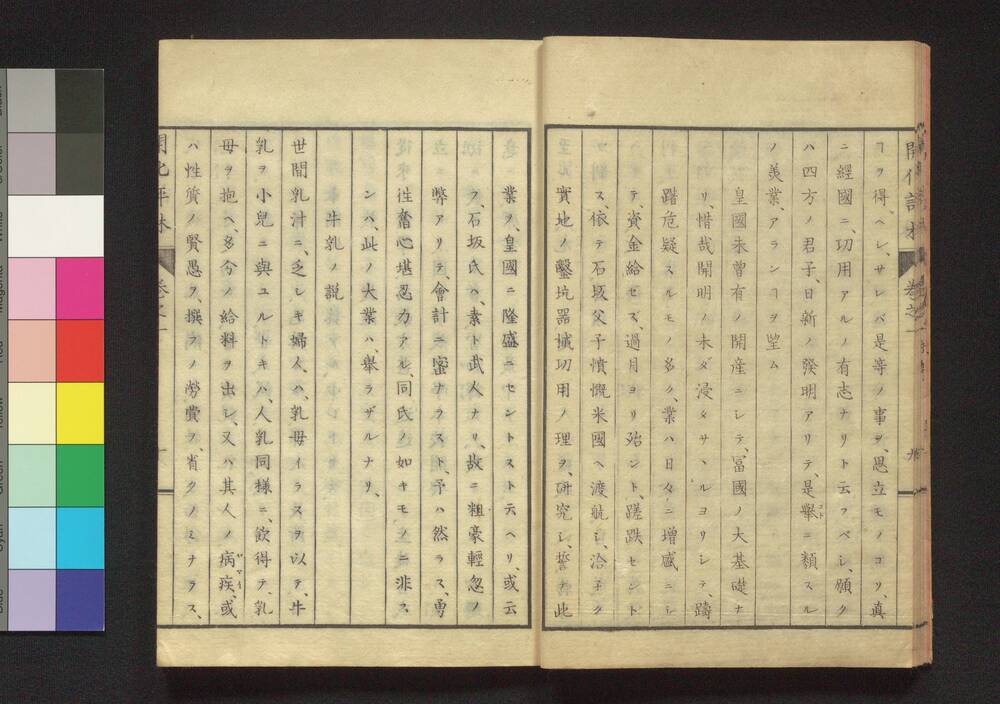 開化評林 卷之一 九
ヿヲ得ヘシ、サレバ是等ノ事ヲ、思立モノコソ、真
ニ經國ニ、功用アルノ有志ナリト云フベシ、願ク
ハ四方ノ君子、日新ノ發明アリテ、是擧ニ類スル
ノ美業、アランヿヲ望ム
皇國未曾有ノ開産ニシテ、冨國ノ大基礎ナ
リ、惜哉開明ノ未ダ浸タサヽルヨリシテ、躊
躇危疑スルモノ多ク、業ハ日々ニ増盛ニシ
テ、資金給セズ、過月ヨリ殆ント、蹉跌セント
ス、依テ石坂父子憤慨米國ヘ渡航シ、洽子ク
實地ノ鑿坑器械功用ノ理ヲ、研究シ、誓テ此
業ヲ、皇國ニ隆盛ニセントスト云ヘリ、或云
フ、石坂氏ハ、素ト武人ナリ、故ニ粗豪輕忽ノ
弊アリテ、會計ニ密ナラスト、予ハ然ラス、勇
徃奮心堪忍力アル、同氏ノ如キモノニ非ス
ンハ、此ノ大業ハ、擧ラザルナリ、
牛乳ノ説
世間乳汁ニ乏シキ婦人ハ、乳母イラスヲ以テ、牛
乳ヲ小兒ニ與ユルトキハ、人乳同様ニ、飲得テ、乳
母ヲ抱ヘ、多分ノ給料ヲ出シ、又ハ其人ノ病疾、或
ハ性質ノ賢愚ヲ、撰フノ勞費ヲ、省クノミナラス、
開化評林 卷之一